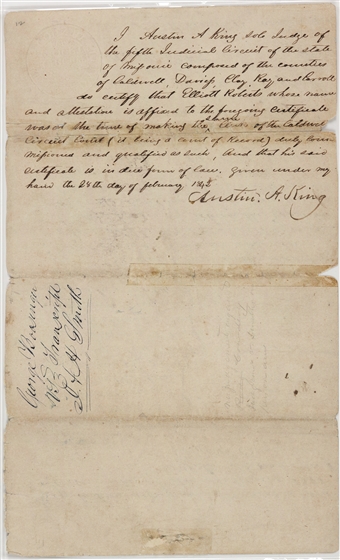 I Austin A King sole Judge of
the fifth Judicial Circuit of the state
of Missouri composed of the counties
of Caldwell Daviess Clay Ray and Carroll
do certify that Elliott Roberts whose name
and attestation is affixed to the foregoing certificate
was at the time of making the same Clerk of the Caldwell
Circuit Court (it being a court of Record) duly
and qualified as such, And that his said
certificate is in due form of Law. given under my
hand the 24th day of february
Austin. A. King
George
Transcript
Smith